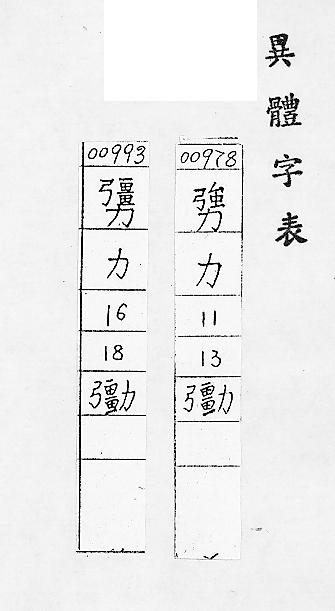 異體字表
00978
勥
力
11
13
00993
力
16
18